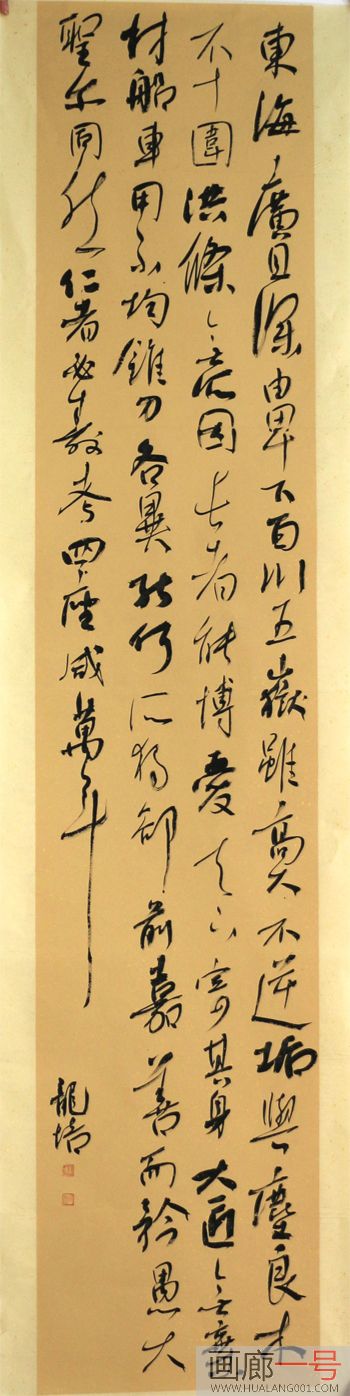 東海廣且深由卑下百川五嶽雖高大不逆垢與塵良木
不十圍洪條無所因長者能博愛天下寄其身大匠無棄
材船車用不均錐刀各異能何所獨卻前嘉善而矜愚大
聖亦同然仁者必壽考四座咸萬年
龍
画廊一号
WWW.HUALANG001.COM